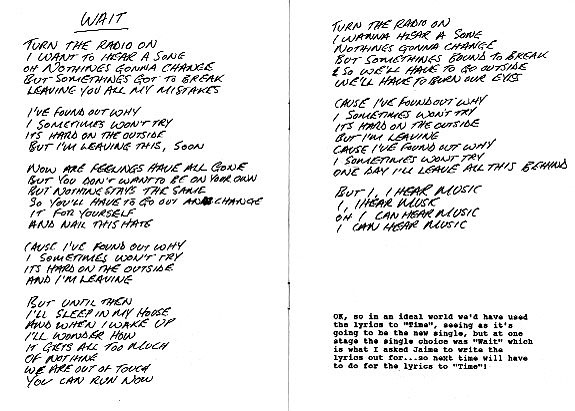 WAIT
TURN THE RADIO ON
I WANT TO HEAR A SONG
OH NOTHINGS GONNA CHANGE
BUT SOMETHINGS GOT TO BREAK
LEAVING YOU ALL MY MISTAKES
I'VE FOUND OUT WHY
I SOMETIMES WON'T TRY
ITS HARD ON THE OUTSIDE
BUT I'M LEAVING THIS, SOON
NOW ARE FEELINGS HAVE ALL GONE
BUT YOU DON'T WANT TO BE ON YOUR OWN
BUT NOTHING STAYS THE SAME
SO YOU'LL HAVE TO GO OUT AND CHANGE
IT FOR YOURSELF
AND NAIL THIS HATE
CAUSE I'VE FOUND OUT WHY
I SOMETIMES WON'T TRY
ITS HARD ON THE OUTSIDE
AND I'M LEAVING
BUT UNTIL THEN
I'LL SLEEP IN MY HOUSE
AND WHEN I WAKE UP
I'LL WONDER HOW
IT GETS ALL TOO MUCH
OF NOTHING
WE ARE OUT OF TOUCH
YOU CAN RUN NOW
TURN THE RADIO ON
I WANNA HEAR A SONG
NOTHINGS GONNA CHANGE
BUT SOMETHINGS BOUND TO BREAK
& SO WE'LL HAVE TO GO OUTSIDE
WE'LL HAVE TO BURN OUR EYES
CAUSE I'VE FOUND OUT WHY
I SOMETIMES WON'T TRY
ITS HARD ON THE OUTSIDE
BUT I'M LEAVING
CAUSE I'VE FOUND OUT WHY
I SOMETIMES WON'T TRY
ONE DAY I'LL LEAVE ALL THIS BEHIND
BUT I, I HEAR MUSIC
I, I HEAR MUSIC
OH I CAN HEAR MUSIC
I CAN HEAR MUSIC
OK, so in an ideal world we'd have used
the lyrics to "Time", seeing as it's
going to be the new single, but at one
stage the single choice was "Wait" which
is what I asked Jaime to write the
lyrics out for...so next time will have
to do for the lyrics to "Time"!